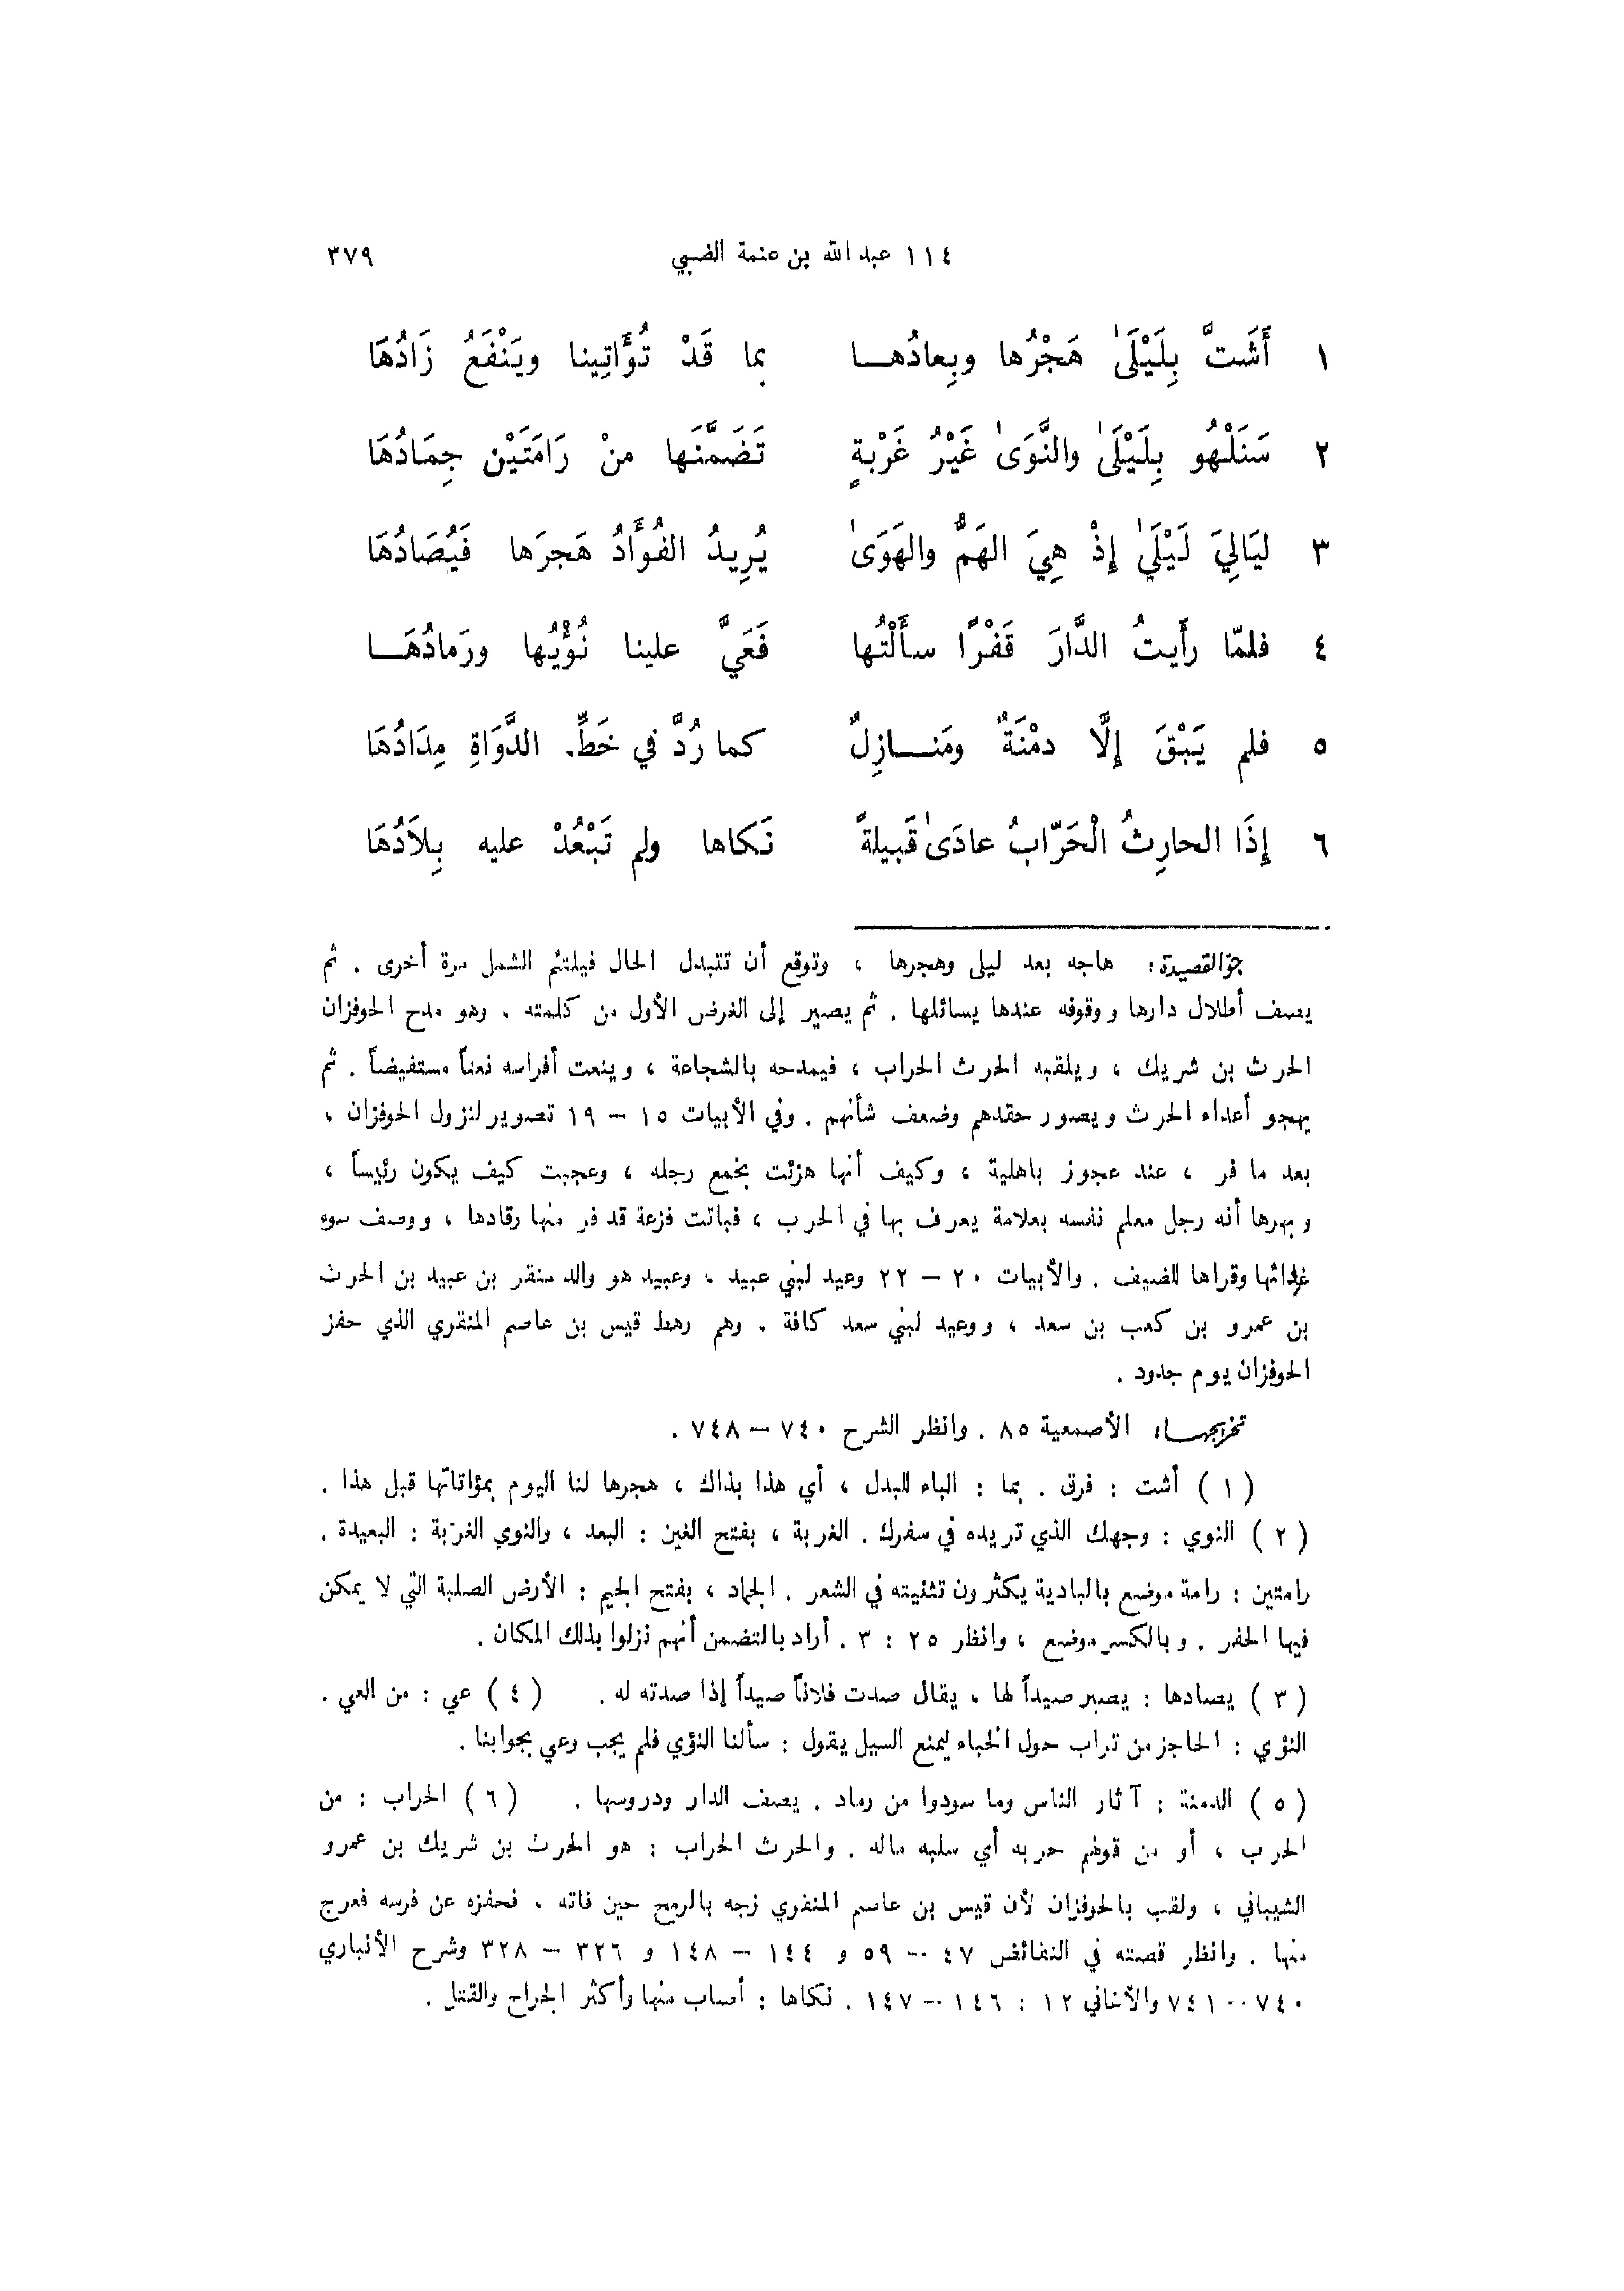 ١١٤ عبد الله بن عنمة الضبي ٣٧٩
١ أَشَتَّ بِلَيْلَىٰ هَجْرُها وبِعادُهـــا بِما قَدْ تُؤَاتِينا ويَنْفَعُ زَادُهَا
٢ سَنَلْهُو بِلَيْلَىٰ والنَّوَىٰ غَيْرُ غَرْبةٍ تَضَمَّنَها منْ رَامَتَيْنِ جِمَادُهَا
٣ ليَالِيَ لَيْلَىٰ إِذْ هِيَ الهَمُّ والهَوَىٰ يُرِيدُ الفُؤَادُ هَجرَها فَيُصَادُهَا
٤ فلمّا رأَيتُ الدَّارَ قَفْرًا سأَلْتُها فَعَيَّ علينا نُؤْيُها ورَمادُهَــا
٥ فلم يَبْقَ إِلَّا دمْنَةٌ ومَنــازِلٌ كما رُدَّ في خَطِّ الدَّوَاةِ مِدَادُهَا
٦ إِذَا الحارِثُ الْحَرّابُ عادَىٰ قَبيلةً نَكَاها ولم تَبْعُدْ عليه بِلاَدُهَا
جوّ القصيدة : هاجه بعد ليلى وهجرها ، وتوقع أن تتبدل الحال فيلتئم الشمل مرة أخرى . ثم
يصف أطلال دارها ووقوفه عندها يسائلها . ثم يصير إلى الغرض الأول من كلمته ، وهو مدح الحوفزان
الحرث بن شريك ، ويلقبه الحرث الحراب ، فيمدحه بالشجاعة ، وينعت أفراسه نعتاً مستفيضاً . ثم
يهجو أعداء الحرث ويصور حقدهم وضعف شأنهم . وفي الأبيات ١٥ – ١٩ تصوير لنزول الحوفزان ،
بعد ما فر ، عند عجوز باهلية ، وكيف أنها هزئت بخمع رجله ، وعجبت كيف يكون رئيساً ،
وبهرها أنه رجل معلم نفسه بعلامة يعرف بها في الحرب ، فباتت فزعة قد فر منها رقادها ، ووصف سوء
غذائها وقراها للضيف . والأبيات ٢٠ – ٢٢ وعيد لبني عبيد ، وعبيد هو والد منقر بن عبيد بن الحرث
بن عمرو بن كعب بن سعد ، ووعيد لبني سعد كافة . وهم رهط قيس بن عاصم المنقري الذي حفز
الحوفزان يوم جدود .
تخريجهــا : الأصمعية ٨٥ . وانظر الشرح ٧٤٠ – ٧٤٨ .
( ١ ) أشت : فرق . بما : الباء للبدل ، أي هذا بذاك ، هجرها لنا اليوم بمؤاتاتها قبل هذا .
( ٢ ) النوي : وجهك الذي تريده في سفرك . الغربة ، بفتح الغين : البعد ، والنوي الغربة : البعيدة .
رامتين : رامة موضع بالبادية يكثرون تثنيته في الشعر . الجماد ، بفتح الجيم : الأرض الصلبة التي لا يمكن
فيها الحفر . وبالكسر موضع ، وانظر ٢٥ : ٣ . أراد بالتضمن أنهم نزلوا بذلك المكان .
( ٣ ) يصادها : يصير صيداً لها ، يقال صدت فلاناً صيداً إذا صدته له . ( ٤ ) عي : من العي .
النؤي : الحاجز من تراب حول الخباء ليمنع السيل يقول : سألنا النؤي فلم يجب وعي بجوابنا .
( ٥ ) الدمنة : آثار الناس وما سودوا من رماد . يصف الدار ودروسها . ( ٦ ) الحراب : من
الحرب ، أو من قولهم حربه أي سلبه ماله . والحرث الحراب : هو الحرث بن شريك بن عمرو
الشيباني ، ولقب بالحوفزان لأن قيس بن عاصم المنقري زجه بالرمح حين فاته ، فحفزه عن فرسه فعرج
منها . وانظر قصته في النقائض ٤٧ – ٥٩ و ١٤٤ – ١٤٨ و ٣٢٦ – ٣٢٨ وشرح الأنباري
٧٤٠ – ٧٤١ والأغاني ١٢ : ١٤٦ – ١٤٧ . نكاها : أصاب منها وأكثر الجراح والقتل .